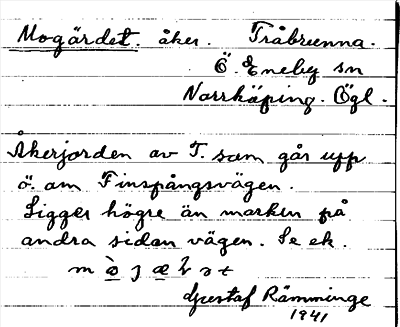 Mogärdet. åker. Tråbrunna.
Ö. Eneby sn
Norrköping. Ögl.
Åkerjorden av T. som går upp
ö. om Finspångsvägen.
Ligger högre än marken på
andra sidan vägen. Se ek.
Gustaf Rämminge
1941